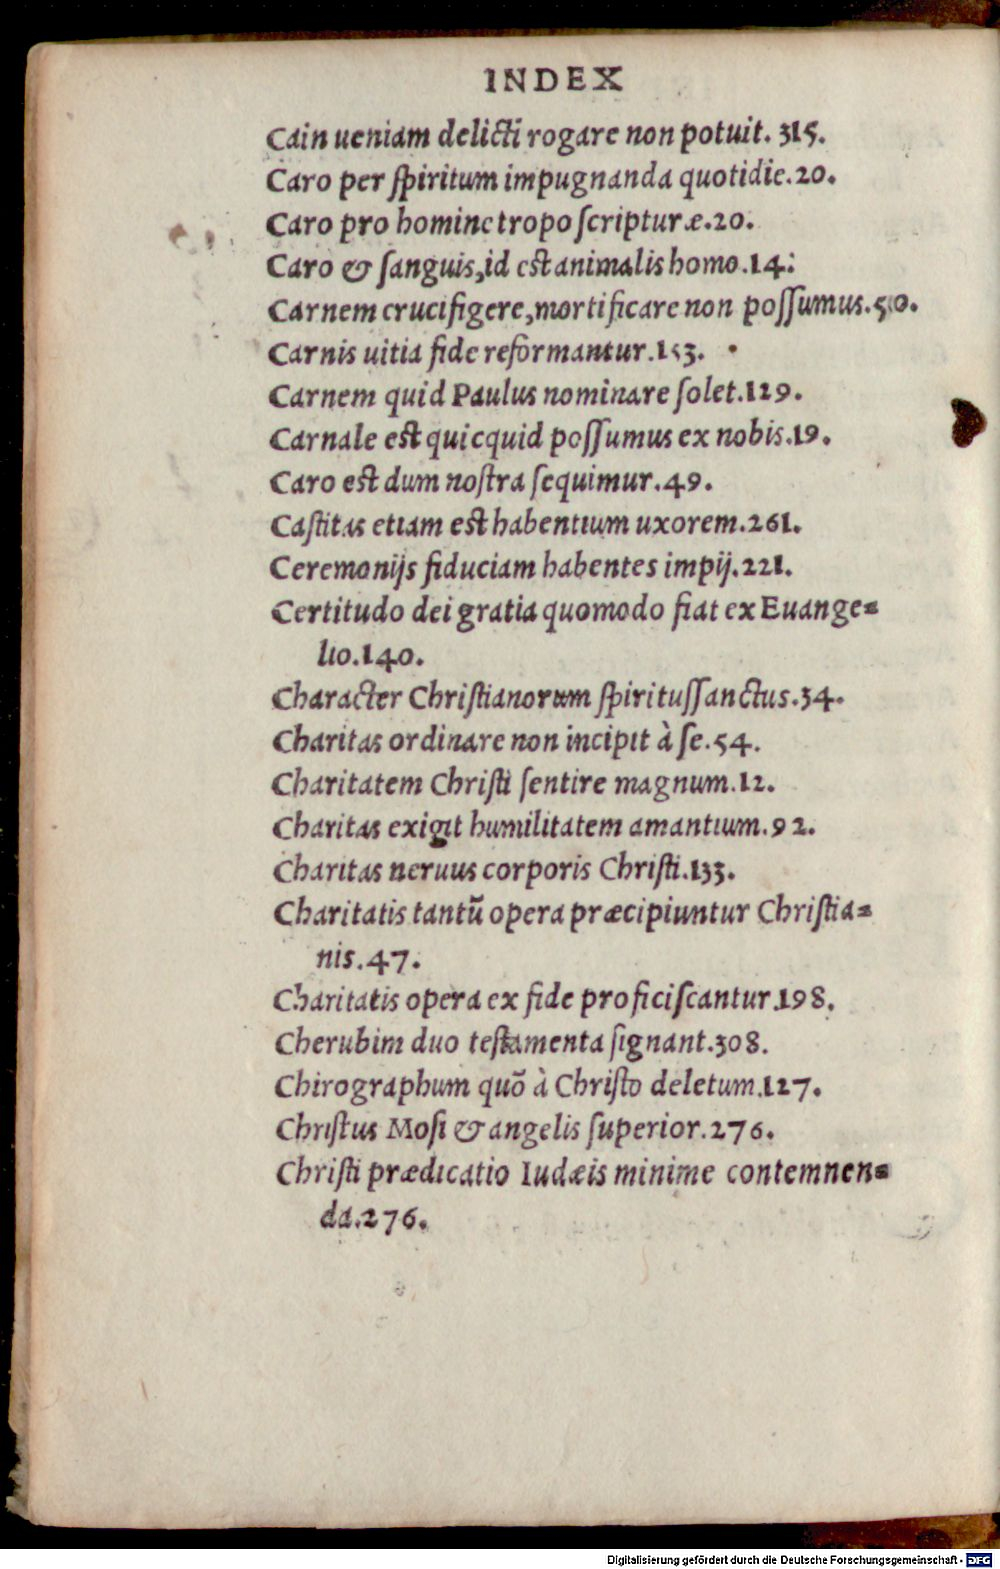 INDEX
Cain ueniam delicti rogare non potuit. 315.
Caro per ſpiritum impugnanda quotidie.20.
Caro pro homine tropo ſcripturæ.20.
Caro & ſanguis,id est animalis homo.14.
Carnem crucifigere,mortificare non poſſumus.50.
Carnis uitia fide reformantur.153.
Carnem quid Paulus nominare ſolet.129.
Carnale est quicquid poſſumus ex nobis.19.
Caro est dum noſtra ſequimur.49.
Caſtitas etiam est habentium uxorem.261.
Ceremonijs fiduciam habentes impij.221.
Certitudo dei gratia quomodo fiat ex Euange=
lio.140.
Character Chriſtianorum ſpirituſſanctus.34.
Charitas ordinare non incipit à ſe.54.
Charitatem Chriſti ſentire magnum.12.
Charitas exigit humilitatem amantium.92.
Charitas neruus corporis Chriſti.133.
Charitatis tantũ opera præcipiuntur Chriſtia=
nis.47.
Charitatis opera ex fide proficiſcantur.198.
Cherubim duo teſtamenta ſignant.308.
Chirographum quõ à Chriſto deletum.127.
Chriſtus Moſi & angelis ſuperior.276.
Chriſti prædicatio Iudæis minime contemnen=
da.276.
Digitalisierung gefördert durch die Deutsche Forschungsgemeinschaft - DFG